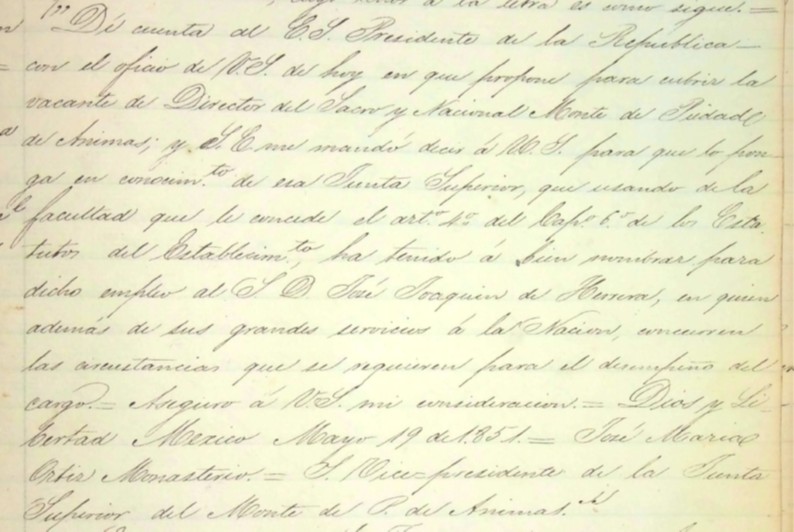 á la letra es como sigue. =
"Dí cuenta al E. S. Presidente de la República
con el oficio de V. S. de hoy en que propone para cubrir la
vacante de Director del Sacro y Nacional Monte de Piedad
de Animas; y S. E. me mandó decir á V. S. para que lo pon-
ga en conocim.to de esa Junta Superior, que usando de la
facultad que le concede el art.o 4.o del Cap.o 6.o de los Esta-
tutos del Establecim.to ha tenido á bien nombrar para
dicho empleo al S. D. José Joaquin de Herrera, en quien
además de sus grandes servicios á la Nacion, concurren
las circustancias que se requieren para el desempeño del
cargo. = Aseguro á V. S. mi consideracion. = Dios y Li-
bertad Mexico Mayo 19 de 1851. = José Maria
Ortiz Monasterio. = S. Vice=presidente de la Junta
Superior del Monte de P. de Animas."